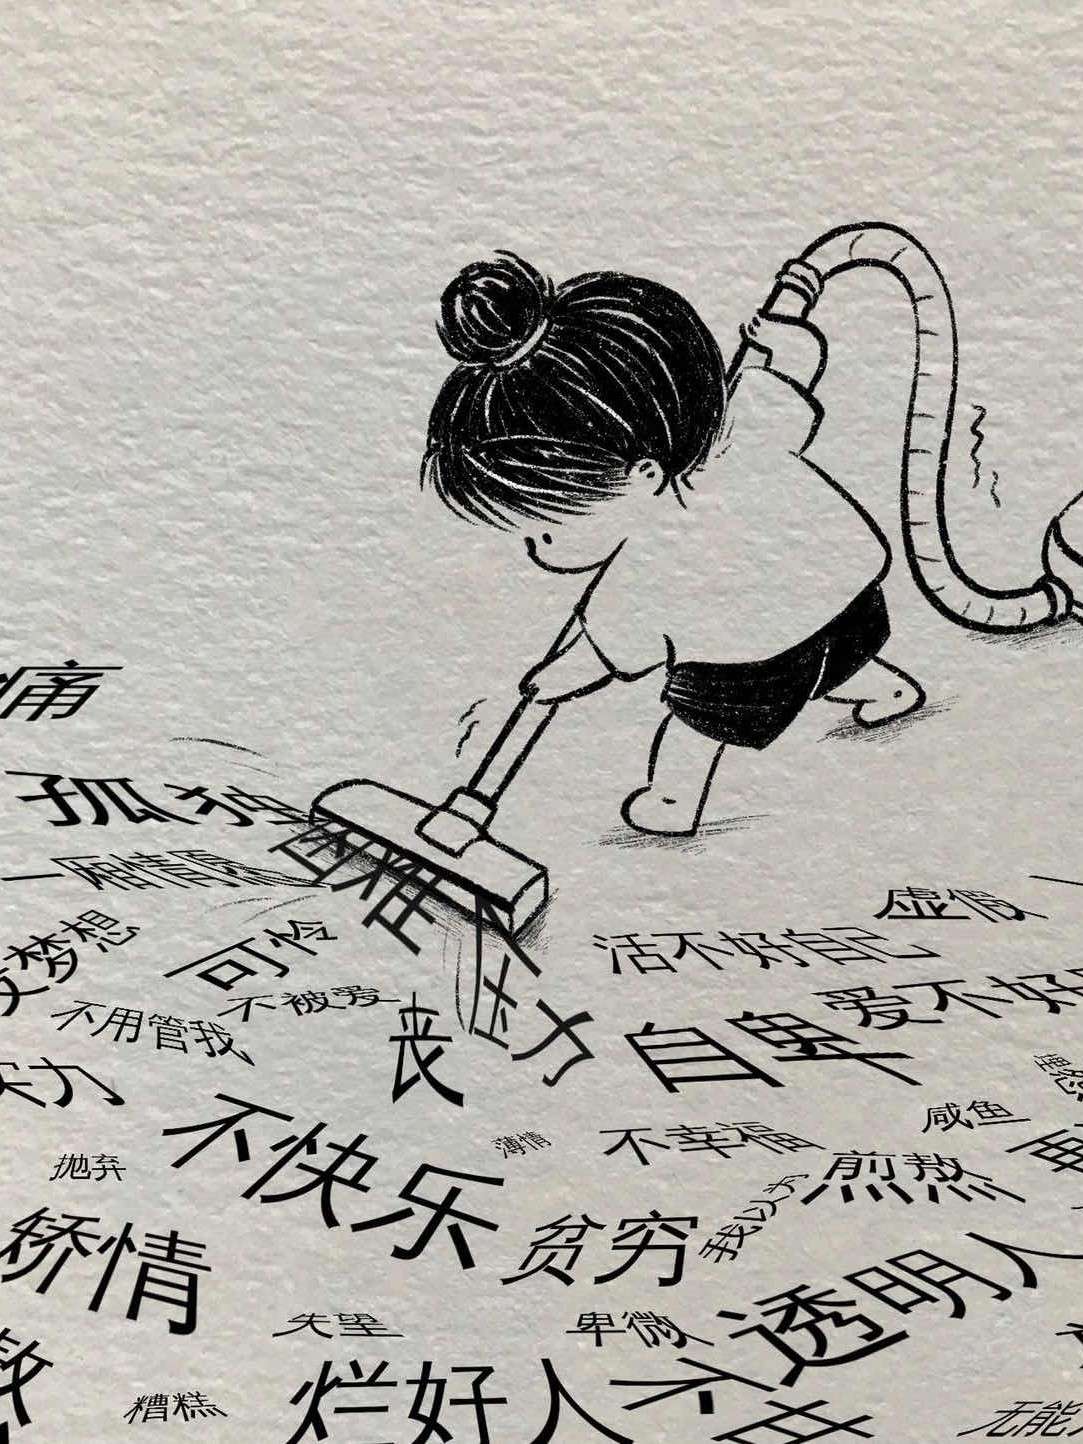 痛
孤独
困难
一厢情愿
虚假
梦想
可怜
活不好自己
不被爱
不用管我
压力
丧
自卑
爱不好
实力
不快乐
薄情
不幸福
咸鱼
抛弃
煎熬
我以为
矫情
贫穷
透明人
失望
卑微
烂好人
糟糕
无能